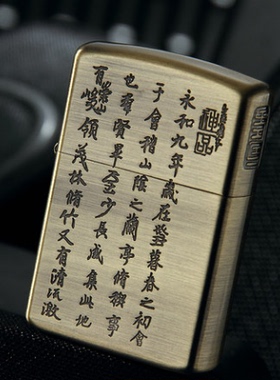 神品
永和九年歲在癸丑暮春之初會
于會稽山陰之蘭亭脩禊事
也羣賢畢至少長咸集此地
有崇山峻領茂林脩竹又有清流激